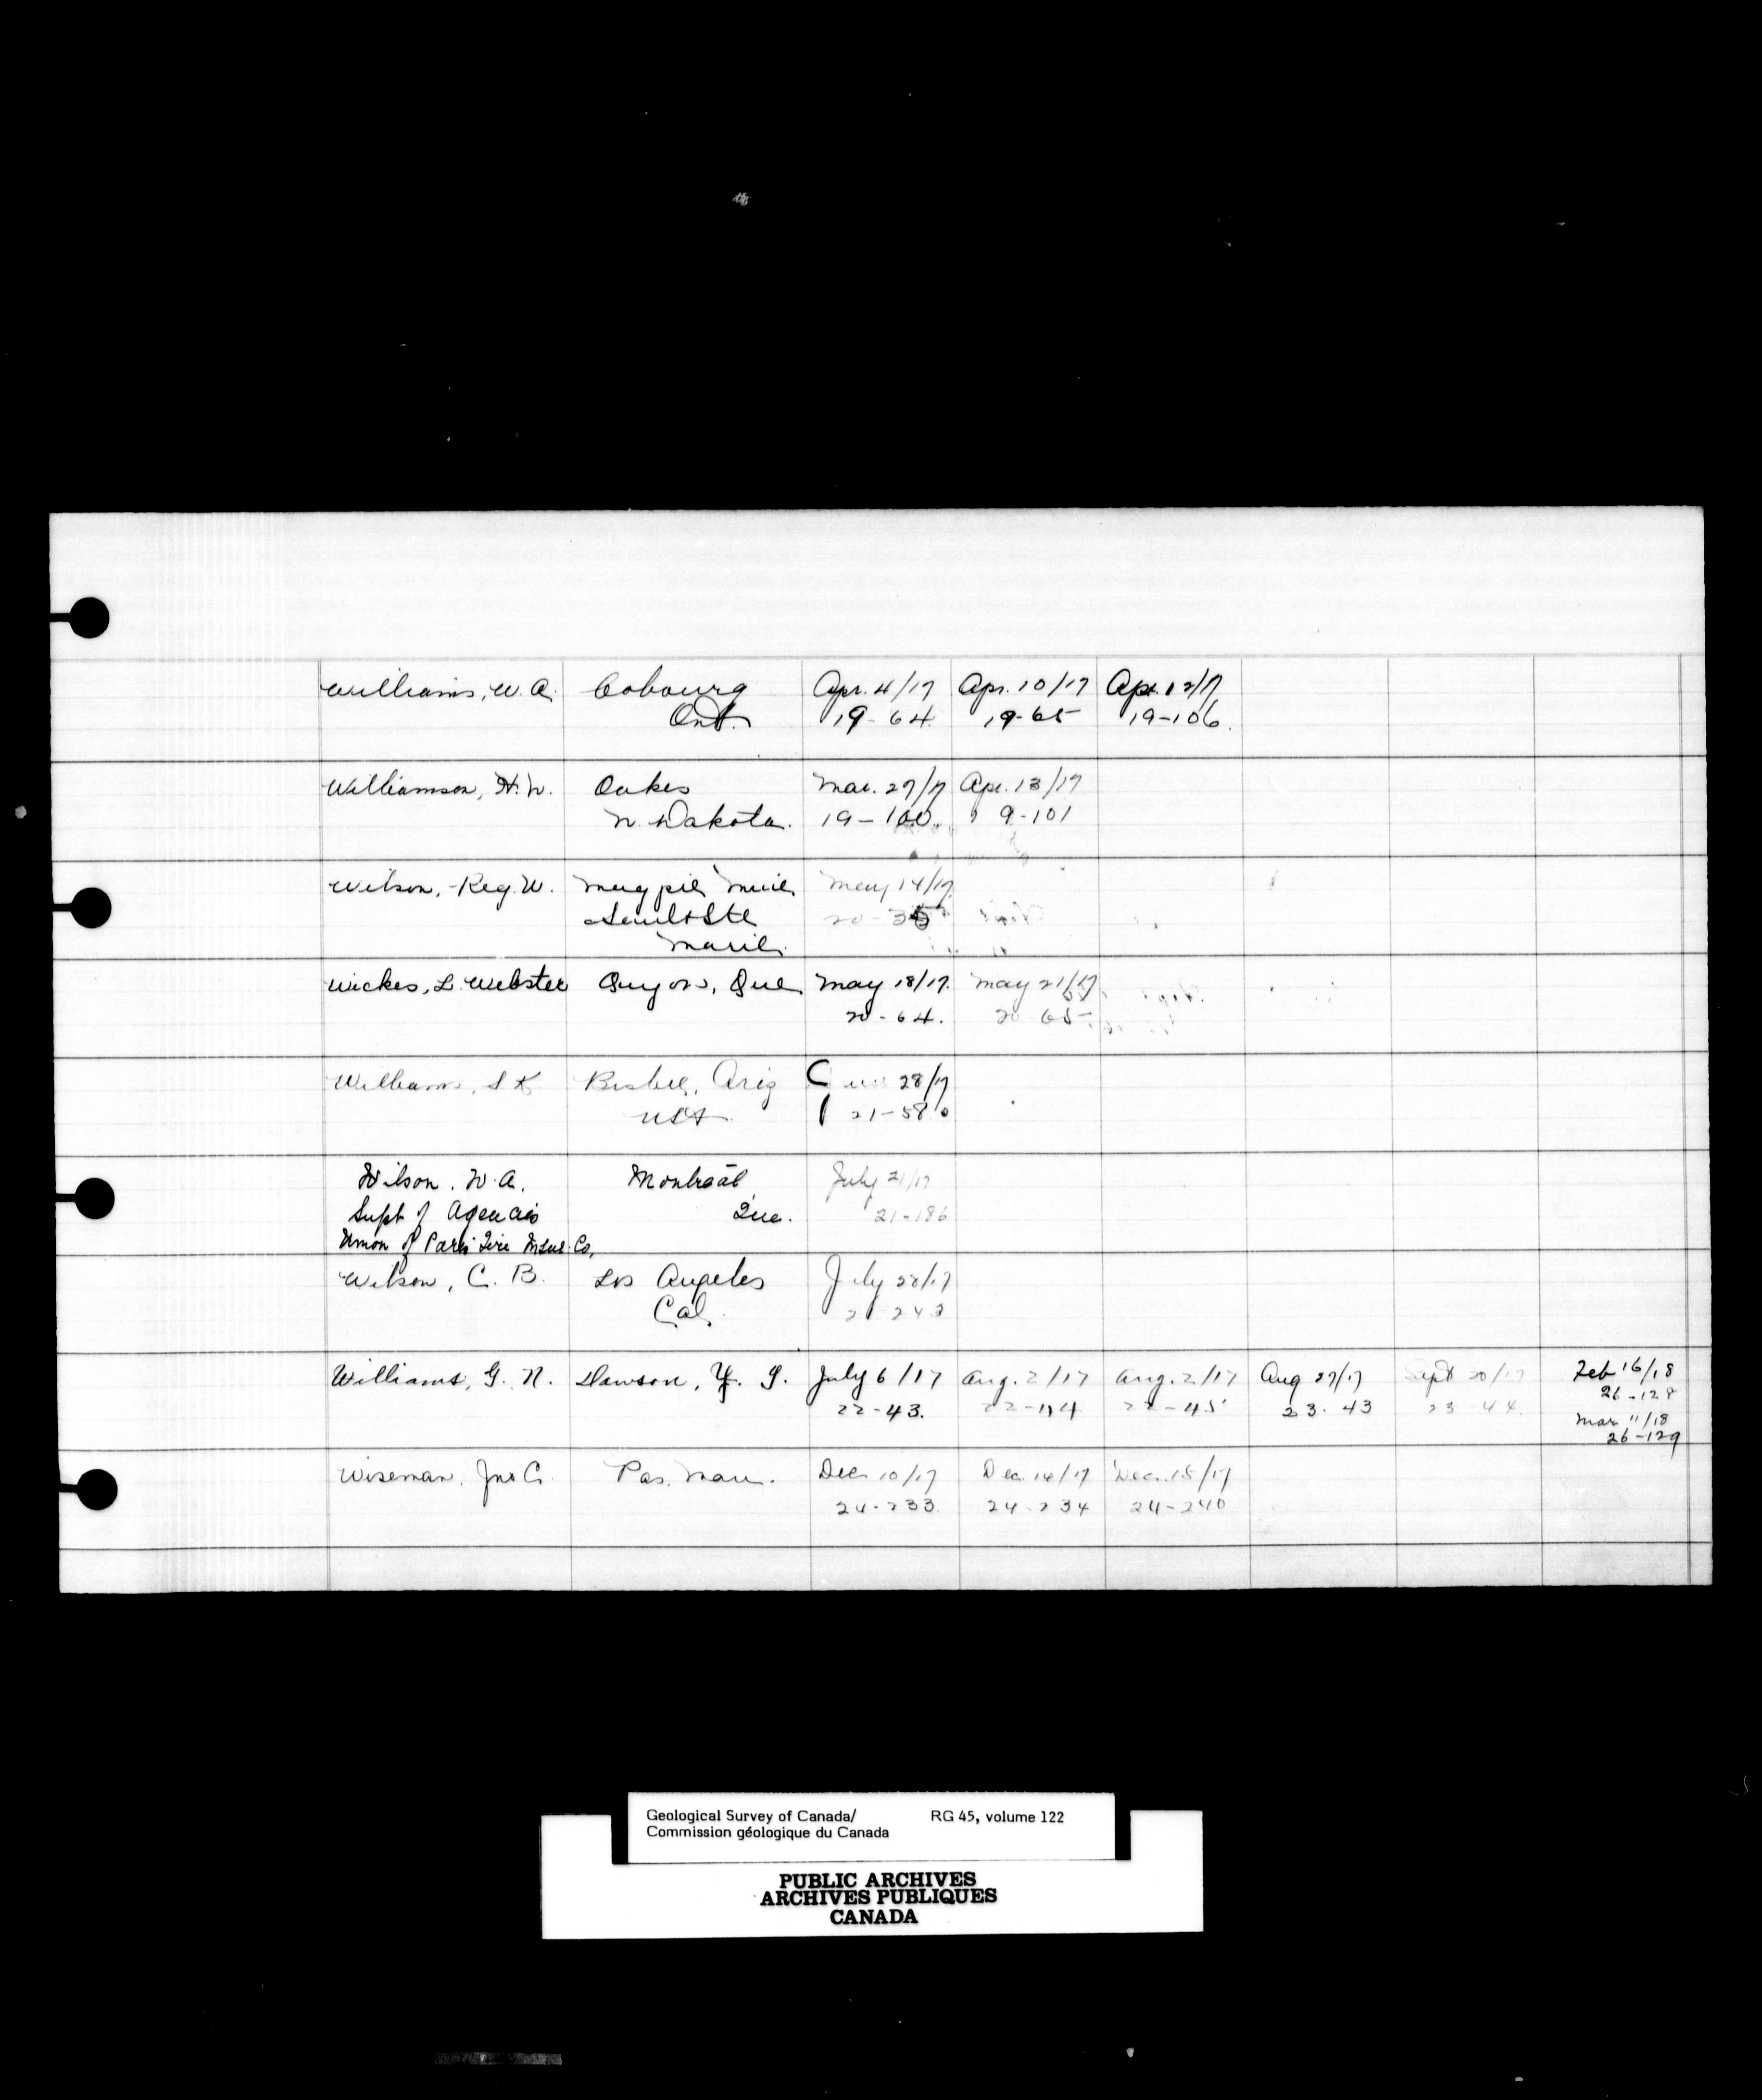 Williams, W. A. Cobourg Apr. 4/17 Apr. 10/17 Apr. 12/17
Ont. 19-64 19-65 19-106.
Williamson, H. W. Oakes Mar. 27/17 Apr. 13/17
N. Dakota. 19-100. 19-101
Wilson, Reg. W. Magpie Mine May 14/17
Sault Ste 20-35
Marie.
Wickes, L. Webster Quyon, Que May 18/17. May 21/17
20-64. 20 65
Williams, S K Bisbee, Ariz June 28/17
USA 21-58
Wilson, W. A. Montreal July 21/17
Supt of Agencies Que. 21-186
Union of Paris Fire Insur. Co,
Wilson, C. B. Los Angeles July 28/17
Cal. 21-243
Williams, G. N. Dawson, Y. T. July 6/17 Aug. 2/17 Aug. 2/17 Aug 27/17 Sept 20/17 Feb 16/18
22-43. 22-44 22-45 23-43 23-44. 26-128
Mar 11/18
26-129
Wiseman, Jno C. Pas, Man. Dec 10/17 Dec. 14/17 Dec. 15/17
24-233. 24-234 24-240
Geological Survey of Canada/ RG 45, volume 122
Commission géologique du Canada
PUBLIC ARCHIVES
ARCHIVES PUBLIQUES
CANADA